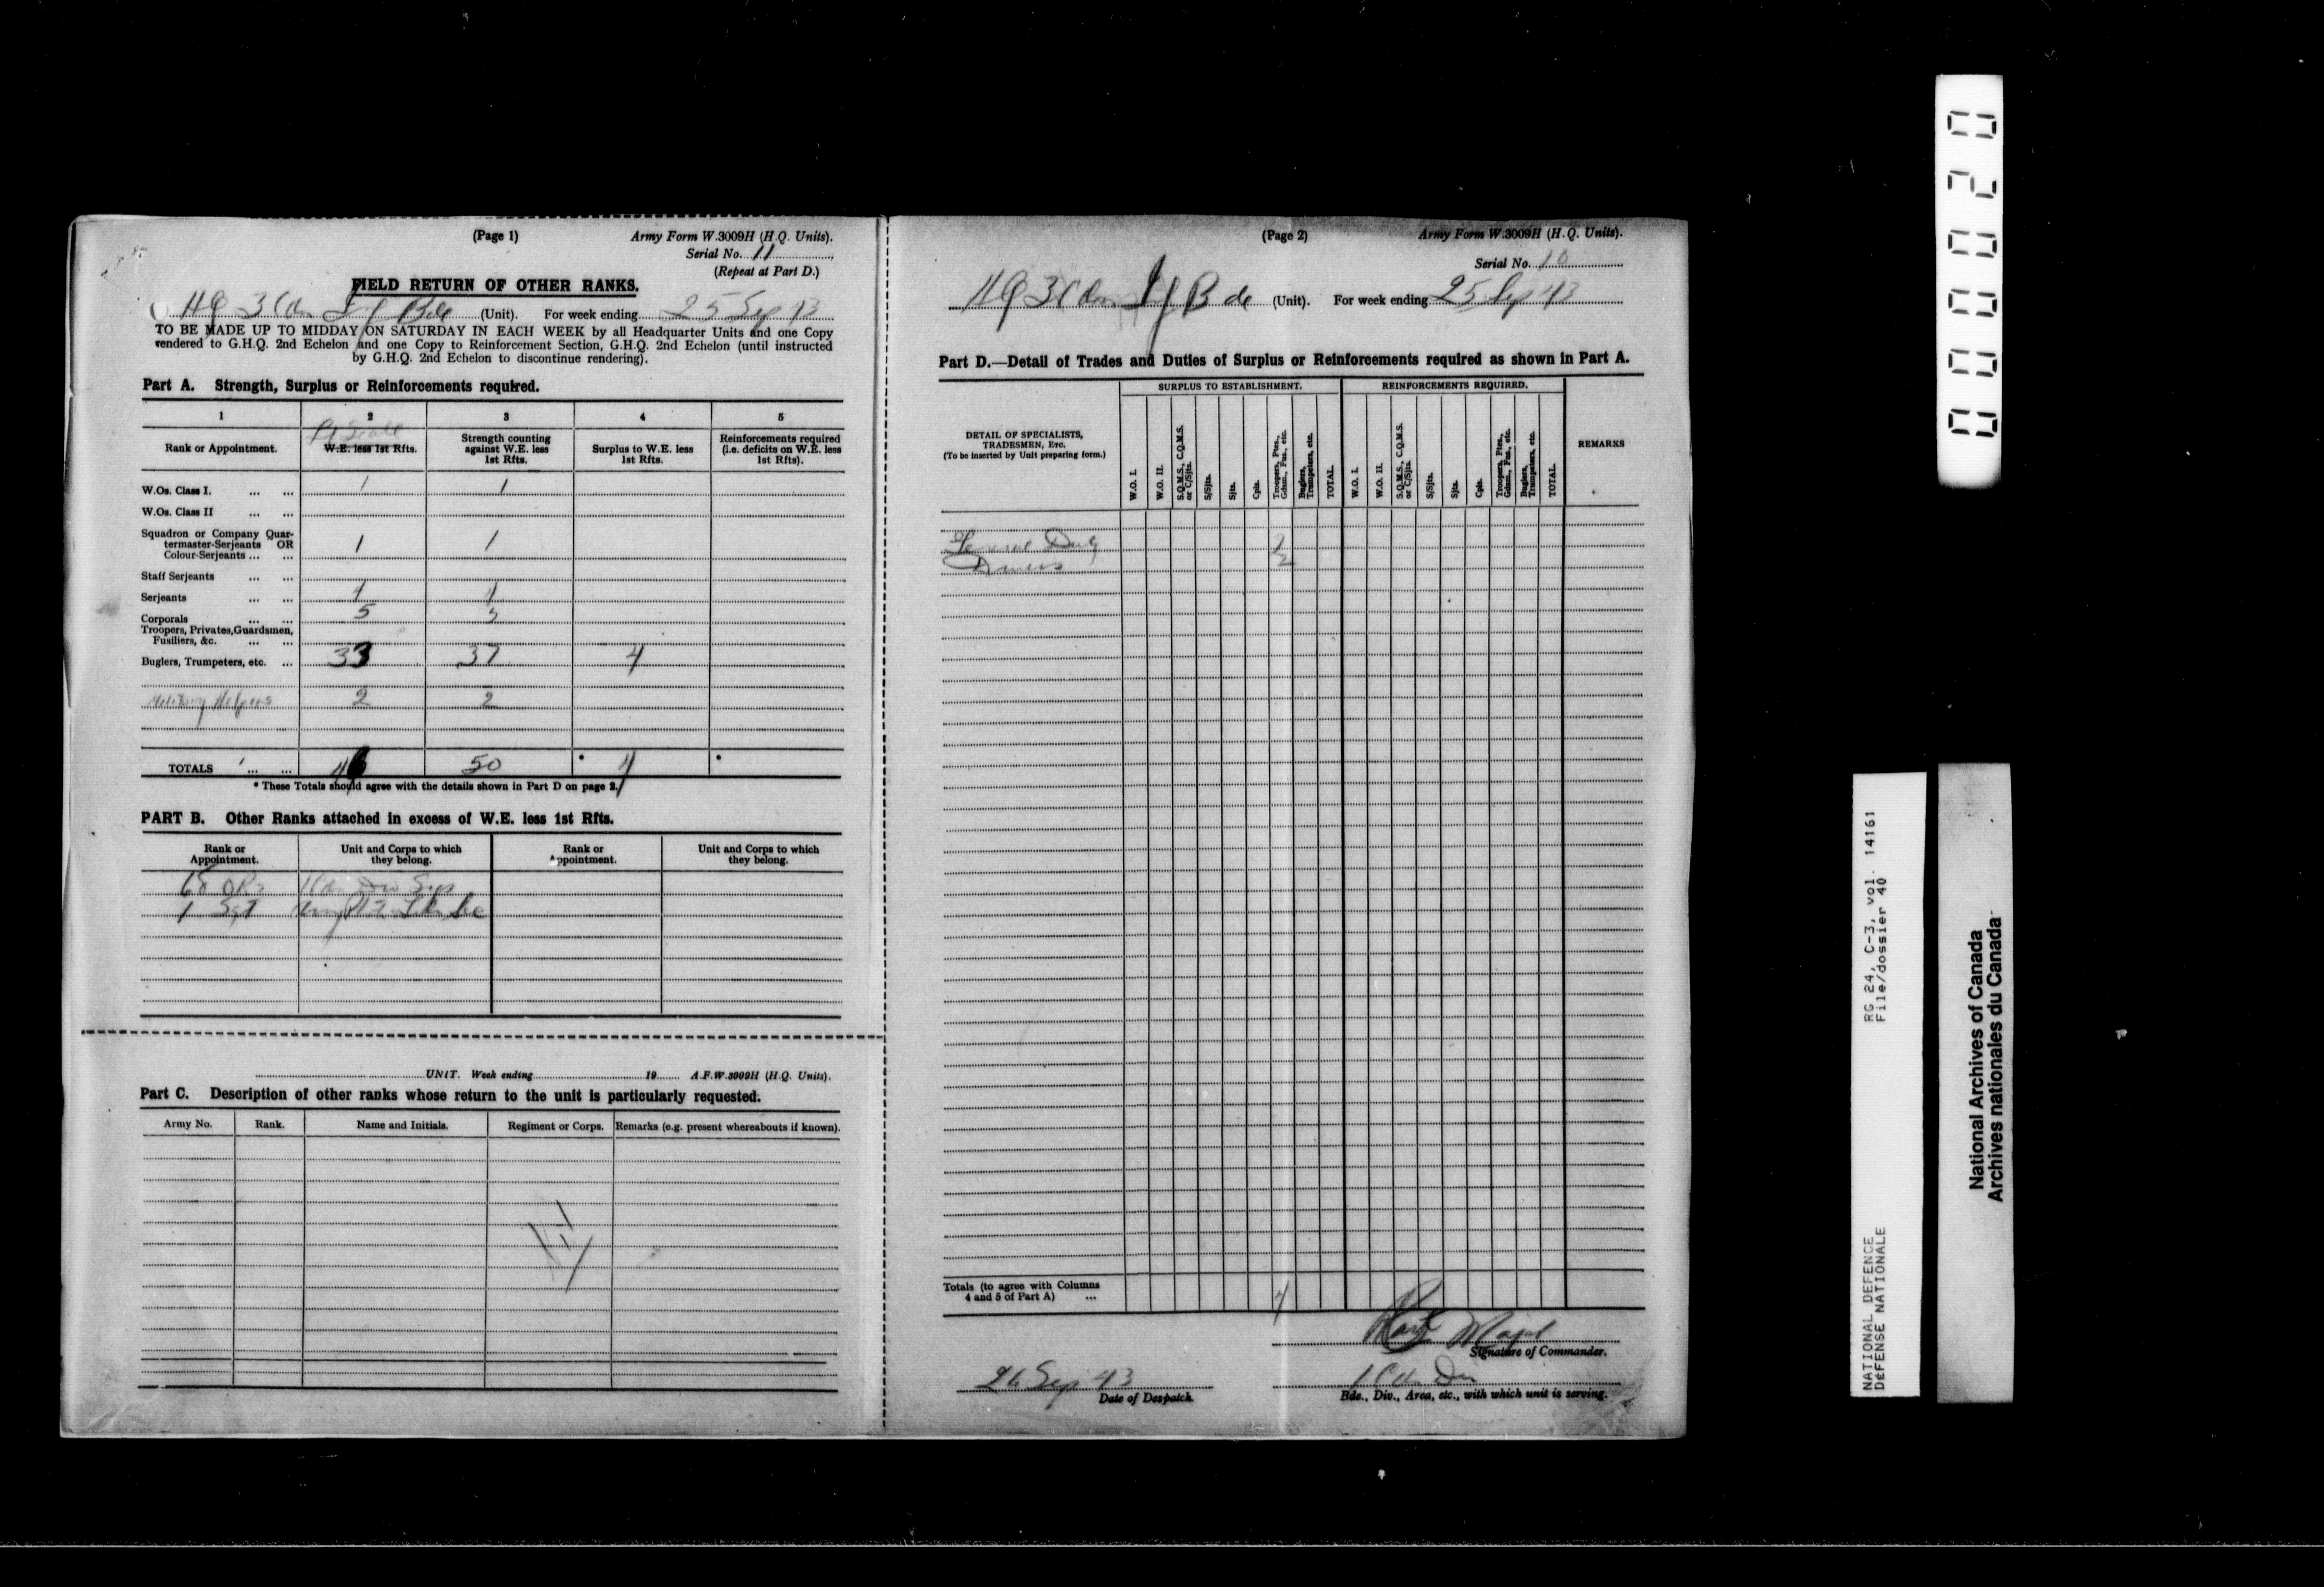 (Page 1)
Army Form W.3009H (H.Q. Units).
Serial No. 11
(Repeat at Part D.)
FIELD RETURN OF OTHER RANKS.
HQ 3 Cdn Inf Bde (Unit). For week ending 25 Sep 43
TO BE MADE UP TO MIDDAY ON SATURDAY IN EACH WEEK by all Headquarter Units and one Copy
rendered to G.H.Q. 2nd Echelon and one Copy to Reinforcement Section, G.H.Q. 2nd Echelon (until instructed
by G.H.Q. 2nd Echelon to discontinue rendering).
Part A. Strength, Surplus or Reinforcements required.
1 2 3 4 5
Rank or Appointment. W.E. less 1st Rfts. Strength counting against W.E. less 1st Rfts. Surplus to W.E. less 1st Rfts. Reinforcements required (i.e. deficits on W.E. less 1st Rfts).
W.Os. Class I. ... ... 1 1
W.Os. Class II ... ...
Squadron or Company Quar-
termaster-Serjeants OR
Colour-Serjeants ... ... 1 1
Staff Serjeants ... ...
Serjeants ... ... 4 4
Corporals ... ... 5 5
Troopers, Privates, Guardsmen,
Fusiliers, &c. ... ...
Buglers, Trumpeters, etc. ... 33 37 4
Military Helpers 2 2
TOTALS ... ... 46 50 * 4 *
* These Totals should agree with the details shown in Part D on page 2.
PART B. Other Ranks attached in excess of W.E. less 1st Rfts.
Rank or Appointment. Unit and Corps to which they belong. Rank or Appointment. Unit and Corps to which they belong.
68 ORs 1 Cdn Div Sigs
1 Sgt
UNIT. Week ending 19 A.F.W.3009H (H.Q. Units).
Part C. Description of other ranks whose return to the unit is particularly requested.
Army No. Rank. Name and Initials. Regiment or Corps. Remarks (e.g. present whereabouts if known).
(Page 2)
Army Form W.3009H (H.Q. Units).
Serial No. 10
HQ 3 Cdn Inf Bde (Unit). For week ending 25 Sep 43
Part D.—Detail of Trades and Duties of Surplus or Reinforcements required as shown in Part A.
DETAIL OF SPECIALISTS, TRADESMEN, Etc.
(To be inserted by Unit preparing form.)
SURPLUS TO ESTABLISHMENT. REINFORCEMENTS REQUIRED. REMARKS
W.O. I. W.O. II. S.Q.M.S., C.Q.M.S. or C/Sjts. S/Sjts. Sjts. Cpls. Troopers, Ptes., Gdsm., Fus., etc. Buglers, Trumpeters, etc. TOTAL.
W.O. I. W.O. II. S.Q.M.S., C.Q.M.S. or C/Sjts. S/Sjts. Sjts. Cpls. Troopers, Ptes., Gdsm., Fus., etc. Buglers, Trumpeters, etc. TOTAL.
General Duty 2
Drivers 2
Totals (to agree with Columns
4 and 5 of Part A) ... 4
Major
Signature of Commander.
26 Sep 43
Date of Despatch.
1 Cdn Div
Bde., Div., Area, etc., with which unit is serving.
000020
RG 24, C-3, vol. 14161
File/dossier 40
NATIONAL DEFENCE
DÉFENSE NATIONALE
National Archives of Canada
Archives nationales du Canada